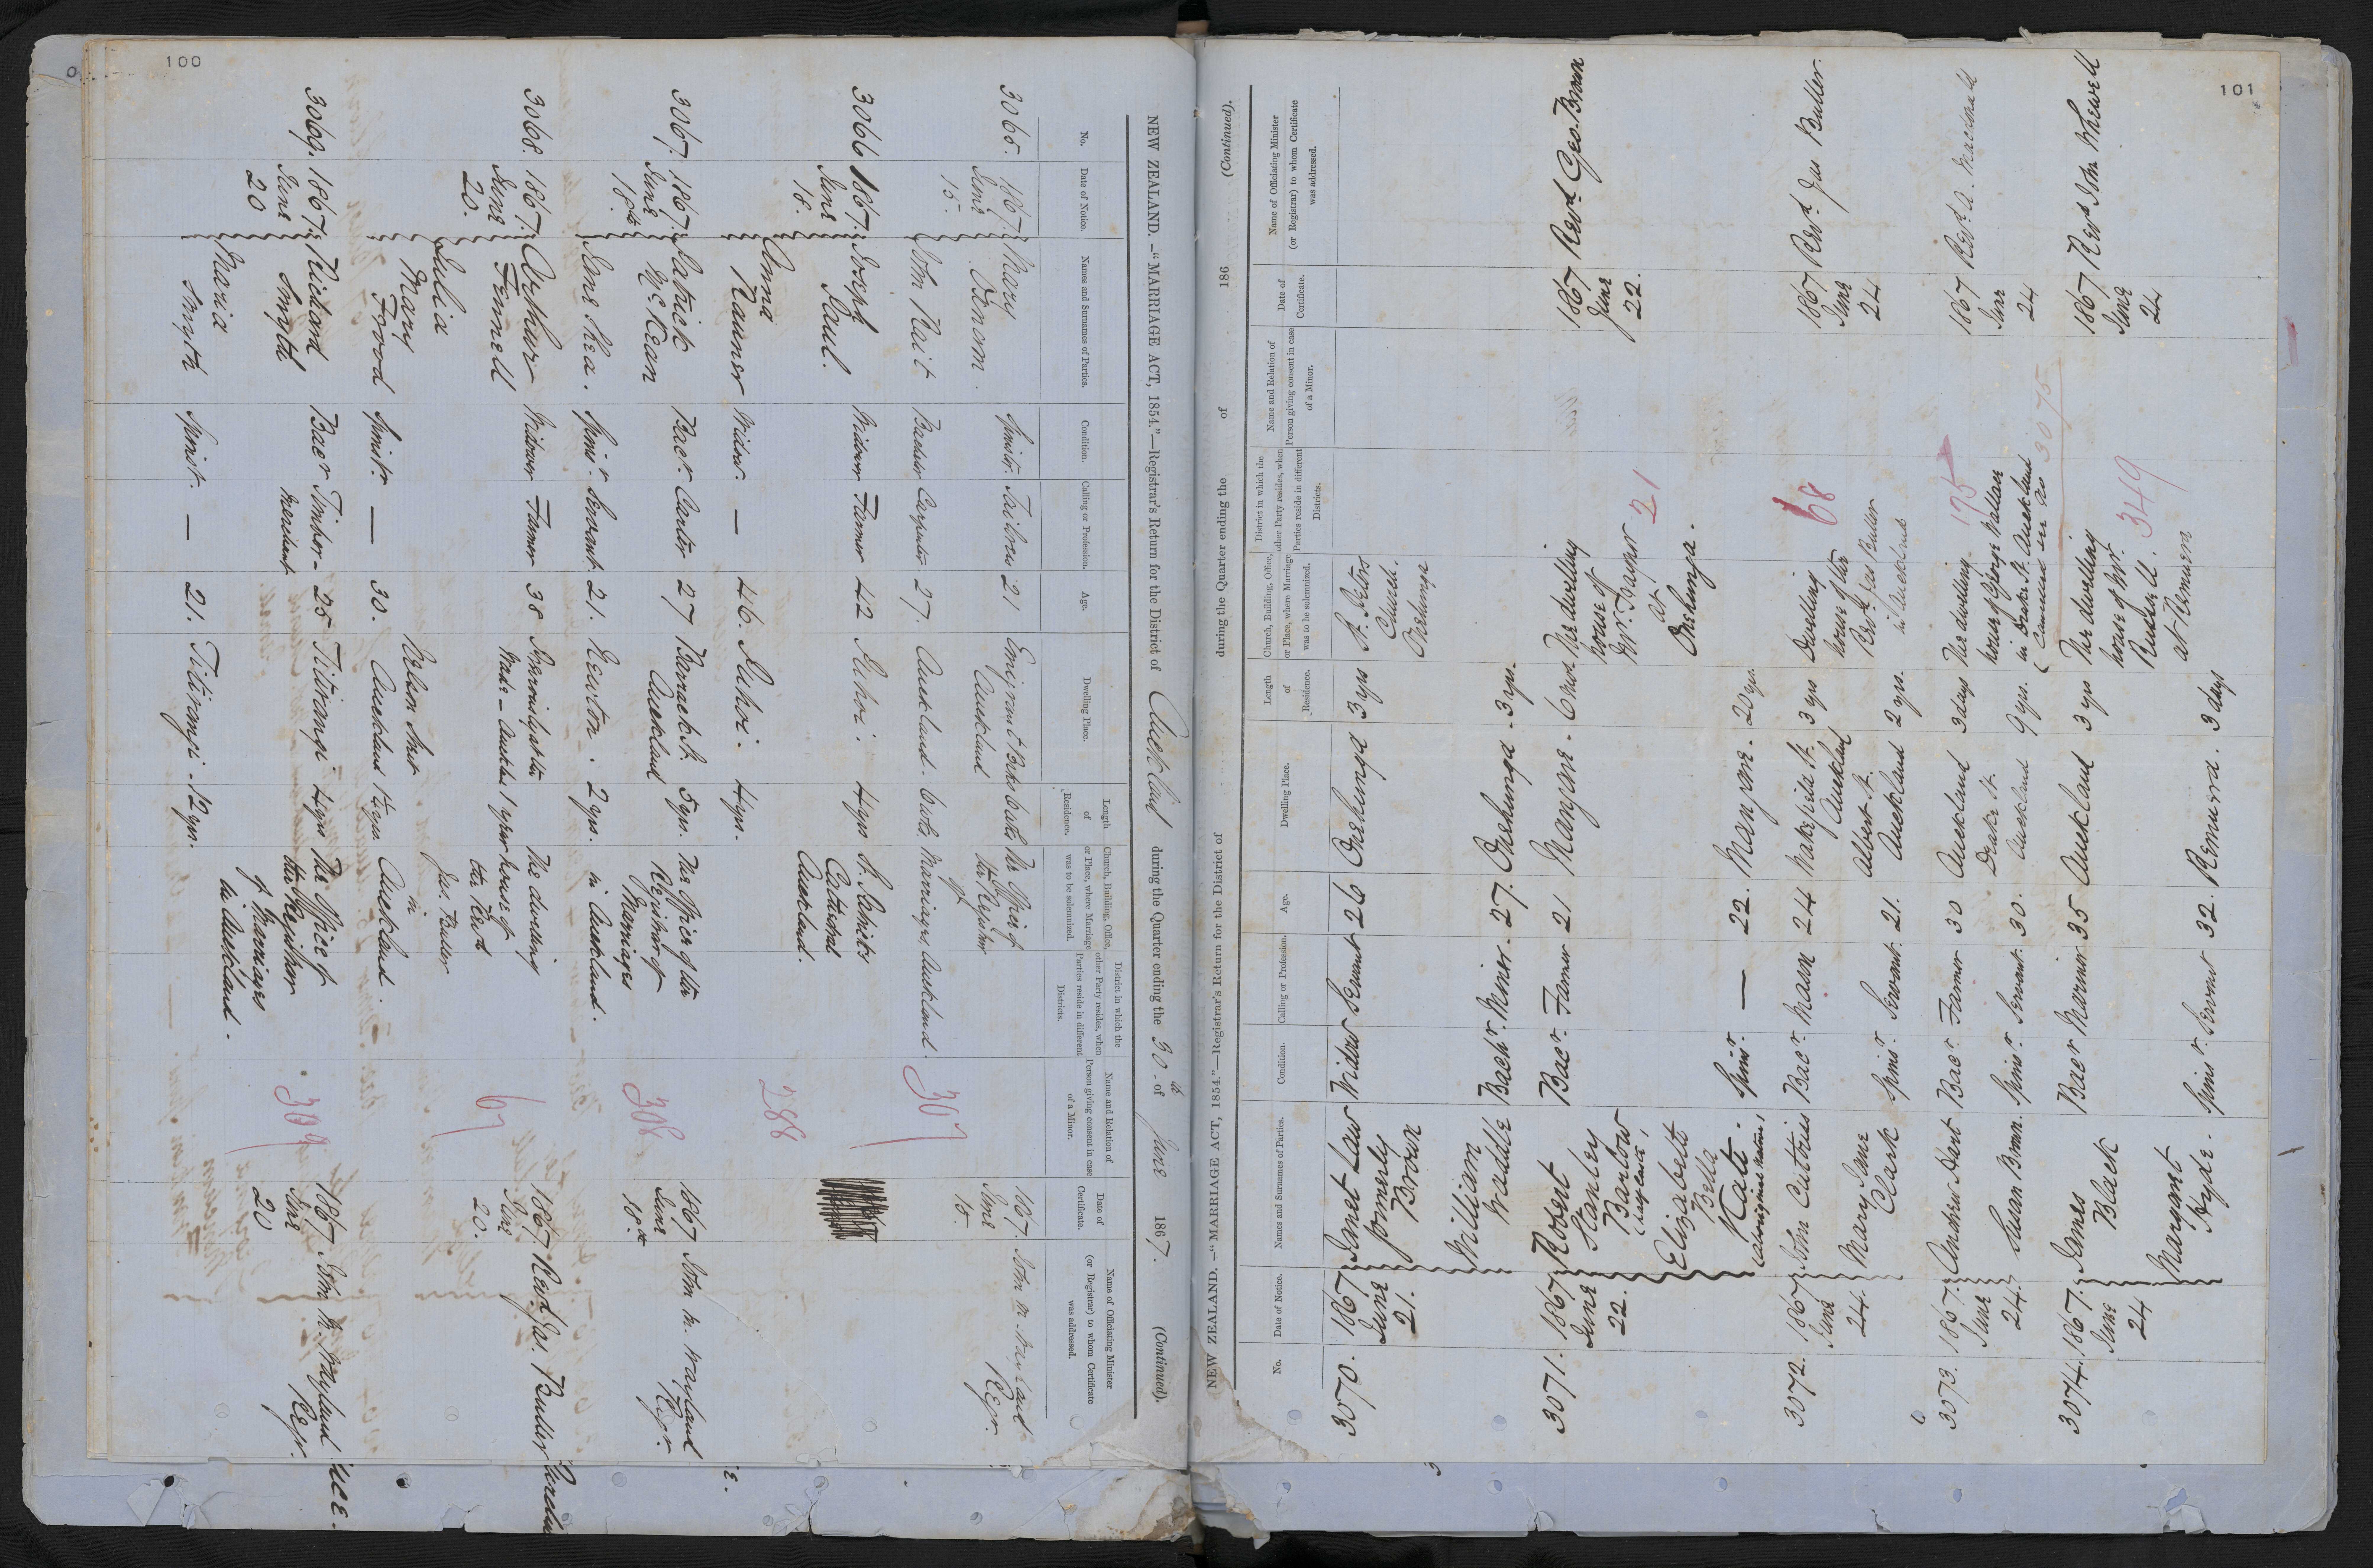 100
NEW ZEALAND.—"MARRIAGE ACT, 1854."—Registrar's Return for the District of Auckland during the Quarter ending the 30th of June 1867. (Continued).
No.
Date of Notice.
Names and Surnames of Parties.
Condition.
Calling or Profession.
Age.
Dwelling Place.
Length of Residence.
Church, Building, Office, or Place, where Marriage was to be solemnized.
District in which the other Party resides, when Parties reside in different Districts.
Name and Relation of Person giving consent in case of a Minor.
Date of Certificate.
Name of Officiating Minister (or Registrar) to whom Certificate was addressed.
3065. 1867. June 15.
Mary
Spinstr. Tailoress 21 Emigrant Auckland
The Office of the Registrar of Marriages Auckland.
John Bachelor Carpenter 27. Auckland.
307
1867. June 15
Regr.
3066 1867. June 18.
Joseph Paul. Widower Farmer 42 Puhoi. 4 yrs
St. Patricks Cathedral Auckland.
Anna Widow. — 46. Puhoi. 4 yrs.
288
3067. 1867. June 18th
Patrick McKean Bacr. Carter 27 Barrack St. Auckland 5 yrs.
The Office of the Registrar of Marriages in Auckland.
Jane Shea. Spinr. Servant 21. Newton. 2 yrs.
308
1867 June 18th
John Wayland Regr.
3068. 1867. June 20.
Arthur Fennell Widower Farmer 38 1 year
The dwelling house of the Revd Jas. Buller in Auckland.
Julia Mary Spinstr. — 30. Nelson Street Auckland
67
1867 June 20.
Revd Jas. Buller
3069. 1867. June 20
Richard Smyth Bacr Timber-merchant 25 Titirangi 4 yrs
The Office of the Registrar of Marriages in Auckland.
Maria Smyth Spinst. — 21. Titirangi. 12 yrs.
309
1867 June 20
John Wayland Regr.
101
NEW ZEALAND.—"MARRIAGE ACT, 1854."—Registrar's Return for the District of during the Quarter ending the of 186 (Continued).
No.
Date of Notice.
Names and Surnames of Parties.
Condition.
Calling or Profession.
Age.
Dwelling Place.
Length of Residence.
Church, Building, Office, or Place, where Marriage was to be solemnized.
District in which the other Party resides, when Parties reside in different Districts.
Name and Relation of Person giving consent in case of a Minor.
Date of Certificate.
Name of Officiating Minister (or Registrar) to whom Certificate was addressed.
3070. 1867 June 21.
Janet Law formerly Brown Widow Servant 26 Onehunga 3 yrs
St. Peters Church. Onehunga
William Waddle Bachr. Miner. 27. Onehunga. 3 yrs.
3071. 1867. June 22.
Robert Stanley Barlow (half caste) Bacr. Farmer 21 Mangere. 6 mos.
The dwelling house of Mr. at Onehunga.
Elizabeth Bella Kati. (aboriginal native) Spinr. — 22. Mangere. 20 yrs.
21
1867 June 22.
Revd Geo. Brown
3072. 1867 June 24.
John Cuttriss Bacr. Mason 24 Wakefield St. Auckland 3 yrs
Dwelling house of the Revd Jas Buller in Auckland
Mary Jane Clark Spinr. Servant. 21. Albert St. Auckland 2 yrs.
68
1867 June 24
Revd Jas Buller.
3073. 1867. June 24.
Andrew Hunt Bacr Farmer 30 Auckland 3 days
The dwelling house of George in Drake St. Auckland
(Cancelled see No 3075
Susan Brown. Spinr Servant. 30. Drake St. Auckland 9 yrs.
175
1867 June 24
Revd A.
3074. 1867. June 24
James Black Bacr Mariner 35 Auckland 3 yrs
The dwelling house of Mr. Russell. at Remuera
Margaret Hyde. Spinr. Servant 32. Remuera. 3 days
349
1867 June 24
Revd John Whewell